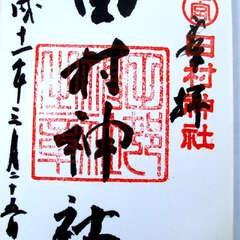 奉拝
田村神社
田村神社
成十一年三月二十五日